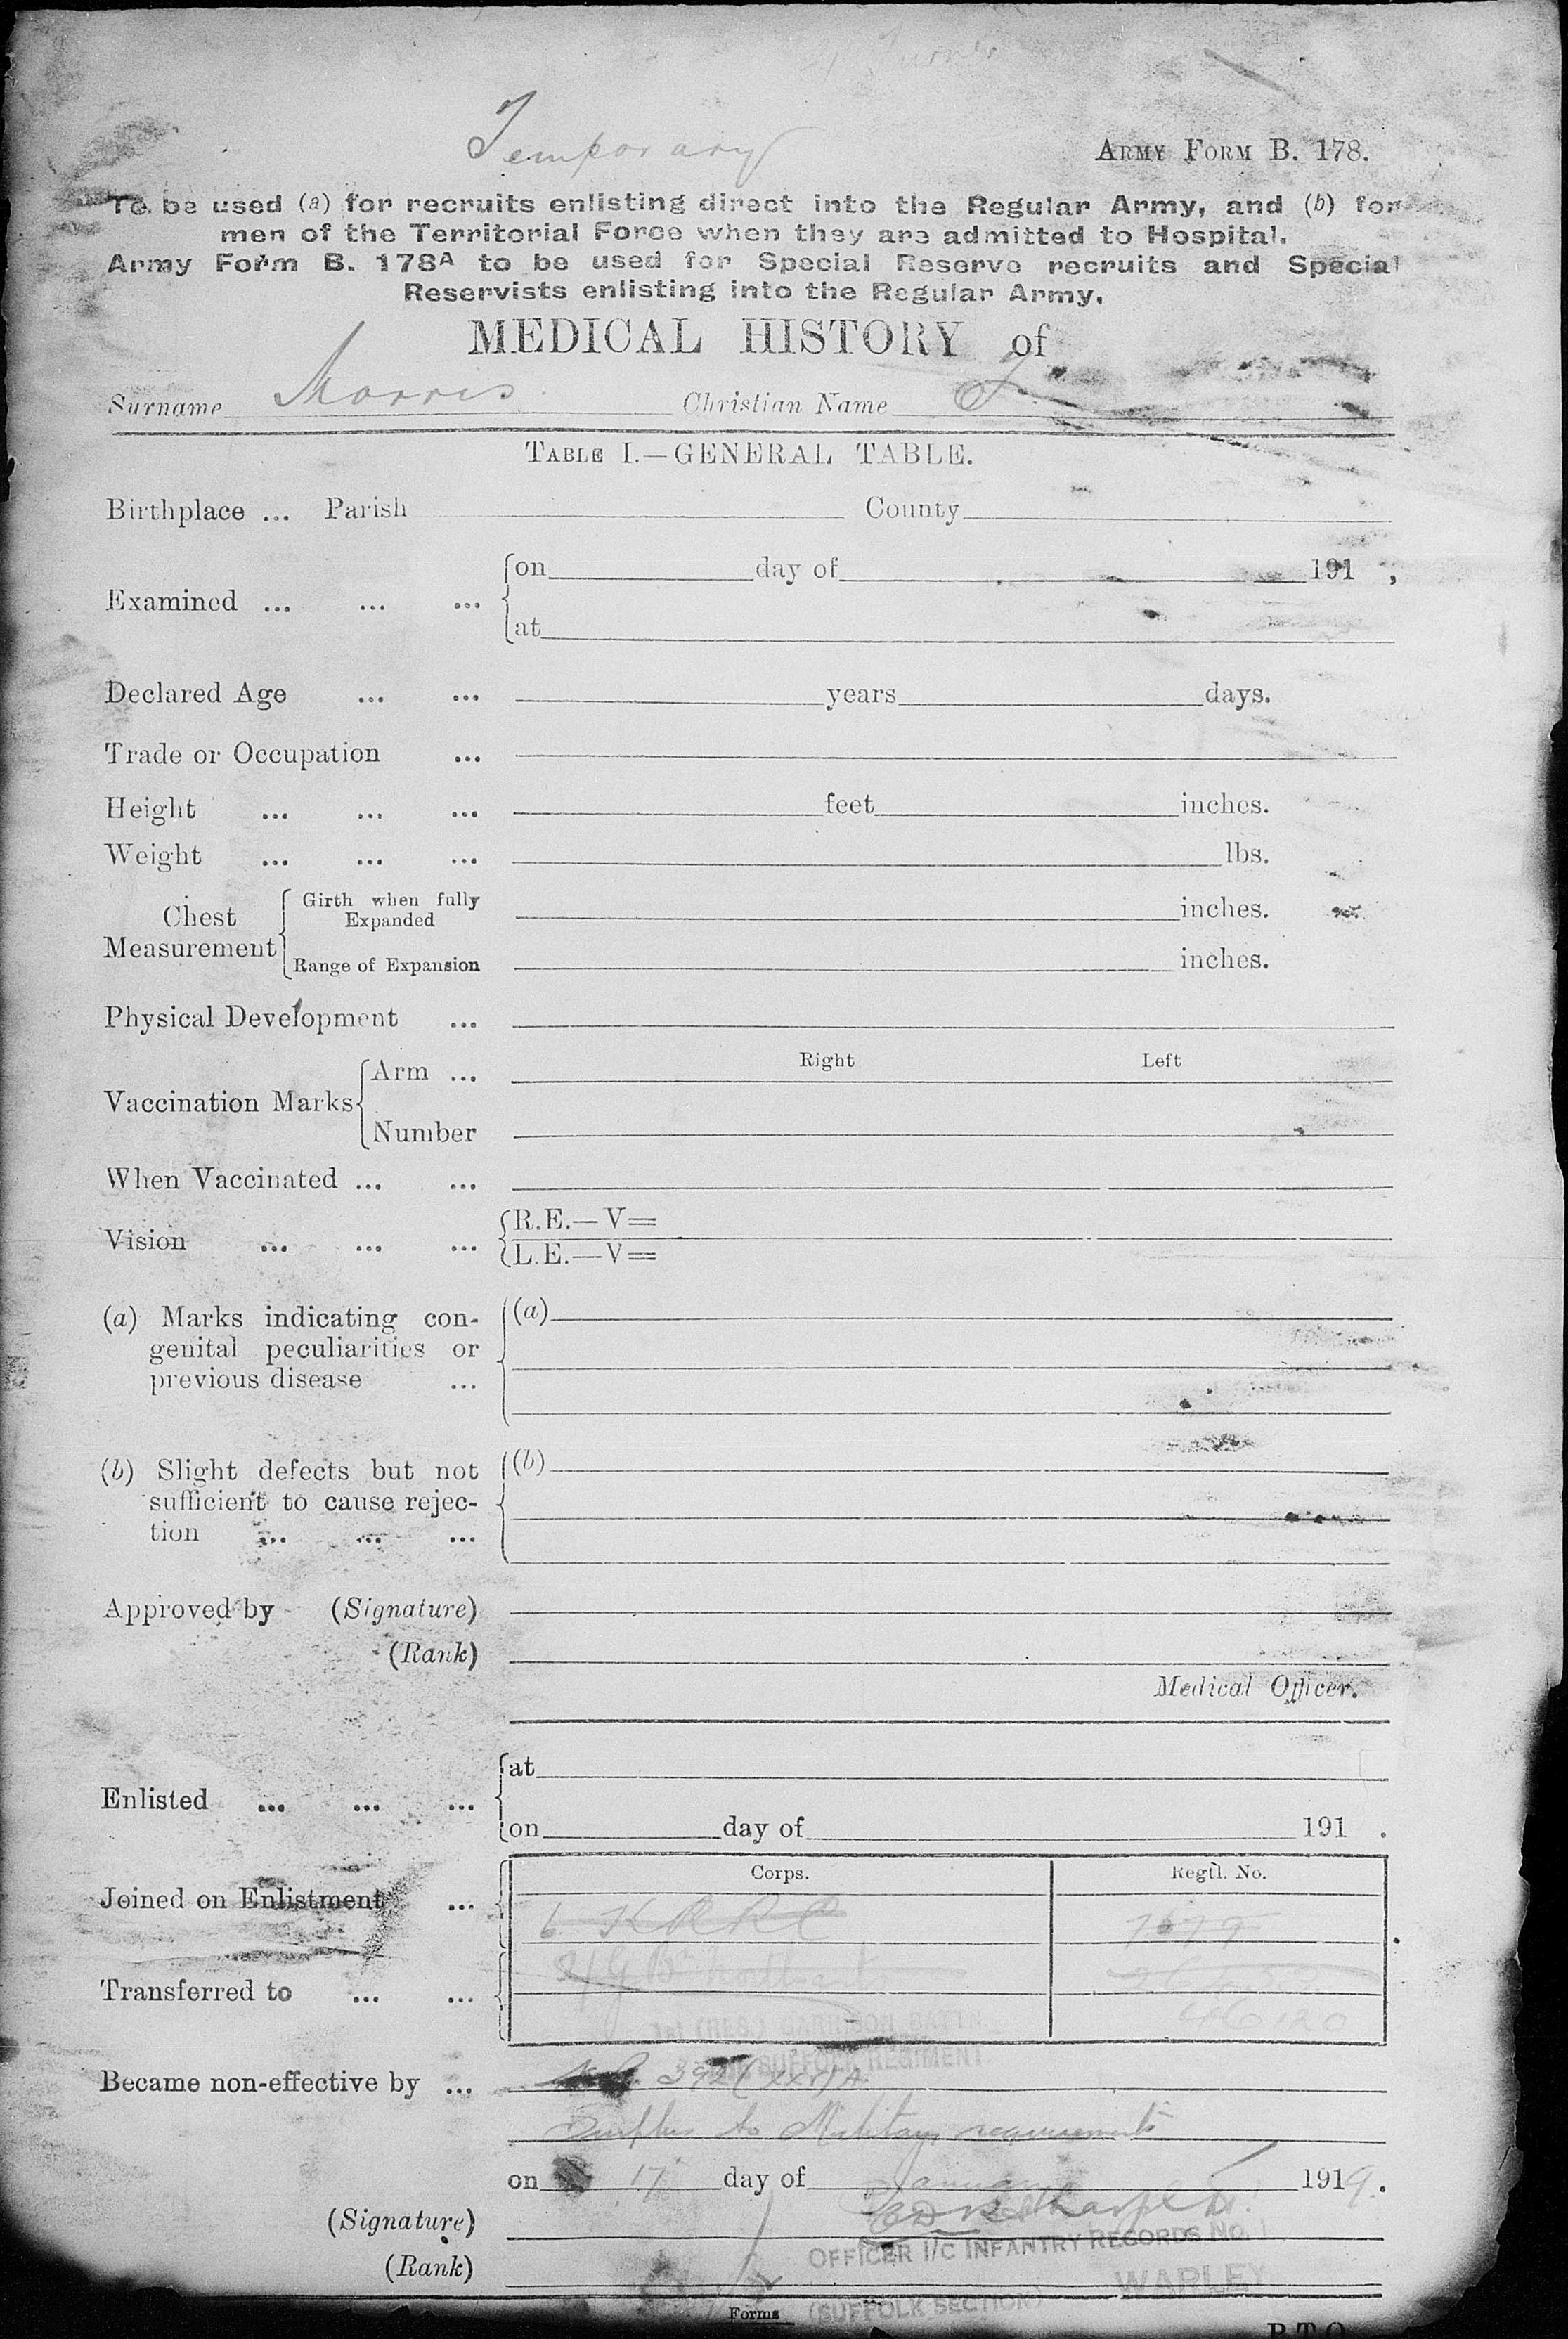 Temporary
ARMY FORM B. 178.
To be used (a) for recruits enlisting direct into the Regular Army, and (b) for
men of the Territorial Force when they are admitted to Hospital.
Army Form B. 178A to be used for Special Reserve recruits and Special
Reservists enlisting into the Regular Army.
MEDICAL HISTORY of
Surname Morris Christian Name
TABLE I.—GENERAL TABLE.
Birthplace ... Parish County
Examined ... ... ... on day of 191 ,
at
Declared Age ... ... years days.
Trade or Occupation ...
Height ... ... ... feet inches.
Weight ... ... ... lbs.
Chest Measurement Girth when fully Expanded inches.
Range of Expansion inches.
Physical Development ...
Right Left
Vaccination Marks Arm ...
Number
When Vaccinated ... ...
Vision ... ... ... R.E.—V=
L.E.—V=
(a) Marks indicating con- (a)
genital peculiarities or
previous disease ...
(b) Slight defects but not (b)
sufficient to cause rejec-
tion ... ... ...
Approved by (Signature)
(Rank)
Medical Officer.
Enlisted ... ... ... at
on day of 191 .
Corps. Regtl. No.
Joined on Enlistment ... 6 KRRC 7679
Transferred to ... ...
46120
GARRISON BATTN
SUFFOLK REGIMENT
Became non-effective by ... 392 (xxv) A
Surplus to Military requirements
on 17 day of January 1919.
(Signature)
OFFICER I/C INFANTRY RECORDS No. 1
(Rank) WARLEY
(SUFFOLK SECTION)
Forms
P.T.O.